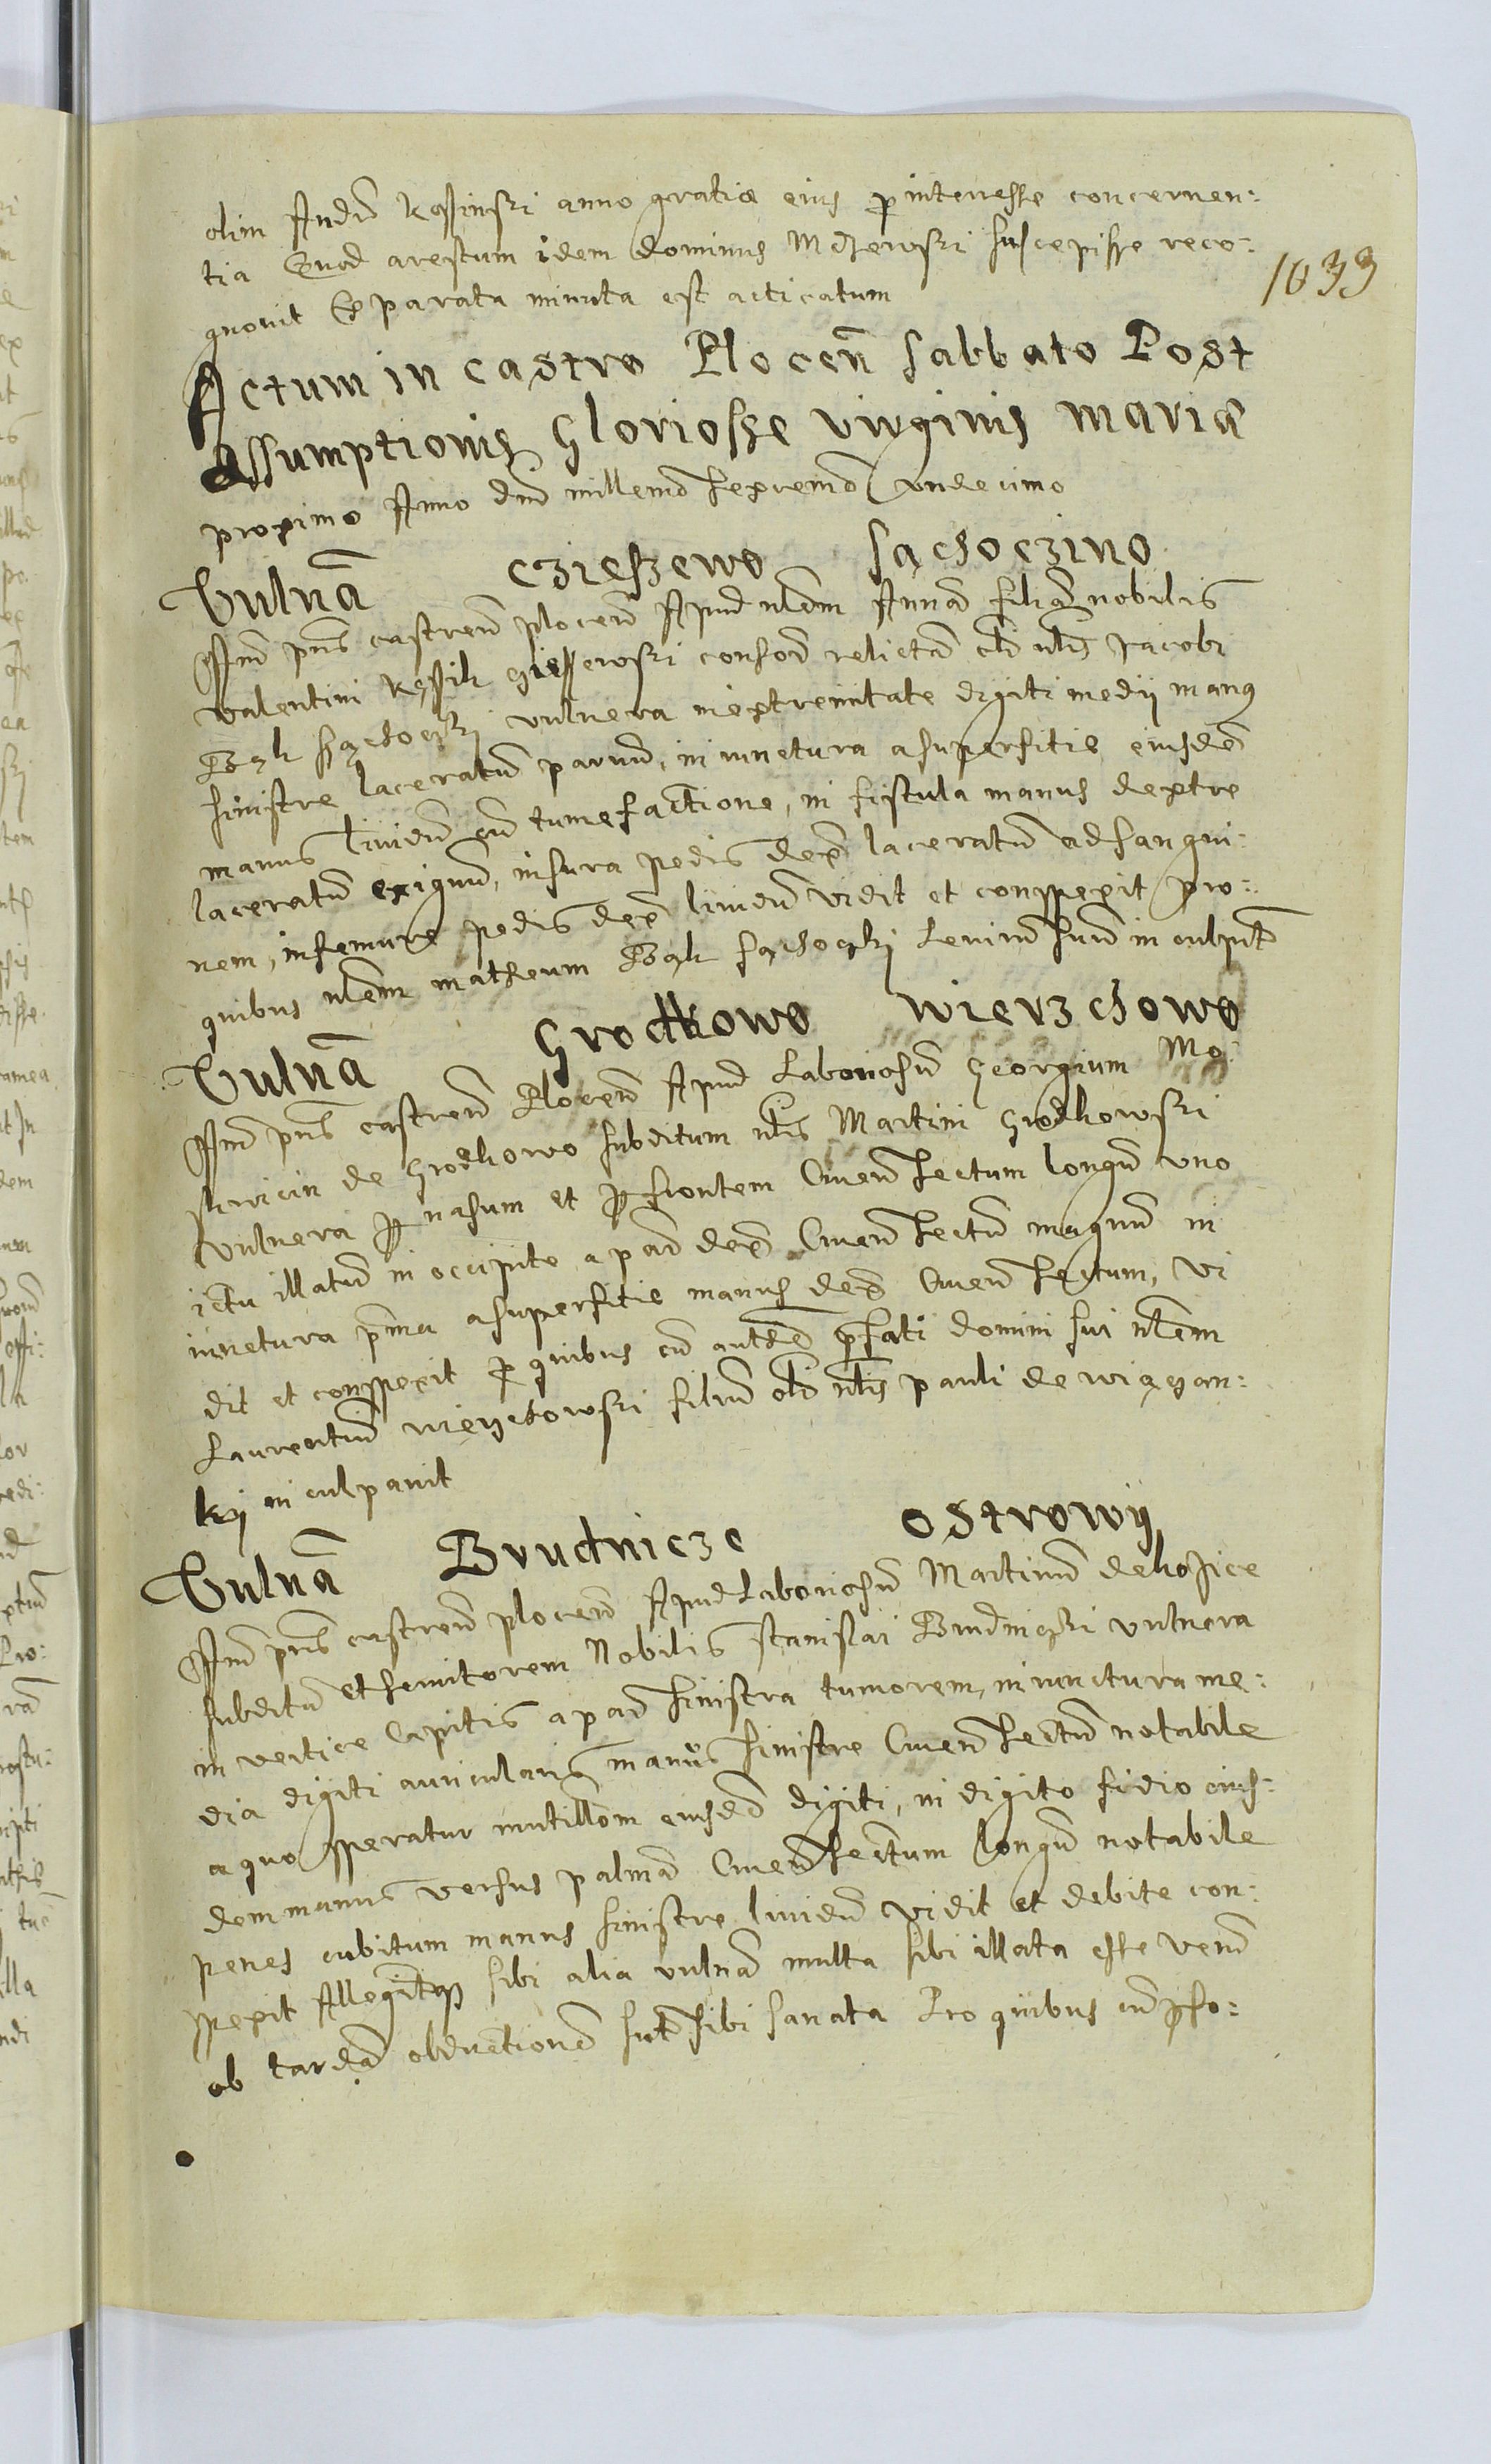 olim Andream Kossinski anno gratiæ eius p interesse concernen:
tia Quod arestum idem dominus suscepisse reco:
gnovit Et parata minuta est acticatum
1033
Actum in castro Plocen̄ sabbato Post
Assumptionis Gloriosse virginis mariæ
proximo Anno dnī millemo sexcemo undecimo
Vulnā czieszewo sąchoczino
pns castren̄ plocen̄ Apud nłem Annā filiā nobilis
valentini czieszewski consor̄ relictā oli nłis Jacobi
Bąk sąchoczki vulnera in extremitate digiti medii manus
sinistre laceratū parvum, in iunctura a superfitie eiusdē
manus lividū cū tumefactione, in fistula manus dextre
laceratū exiguū, in sura pedis dex̄ laceratū ad sangvi:
nem, in femure pedis dex̄ lividū vidit et conspexit pro:
quibus nłem matheum Bąk sąchoczki levirū suū inculpat
Vulnā Grodkowo wierzchowo
pns castren̄ Plocen̄ Apud Laboriosū Georgium Mo:
de Grodkowo subditum nłis Martini Grodkowski
vulnera p nasum et p frontem Cruen̄ sectum longū uno
ictu illatū in occipite a par̄ dex̄ Cruen̄ sectū magnū in
iunctura pma a superfitie manus dex̄ Cruen̄ sectum, Vi
dit et conspexit p quibus cū auth̄ē pfati domini sui nłem
Laurentiū wierzchowski filiū oli nłis pauli de
kij inculpavit
Vulnā Brudnicze ostrowij
pns castren̄ plocen̄ Apud Laboriosū Martinū
subditū et servitorem Nobilis stanislai Brudniczki vulnera
in vertice Capitis a par̄ sinistra tumorem, in iunctura me:
dia digiti auricularis manus sinistre Cruen̄ sectū notabile
a quo speratur mutillōm eiusdē digiti, in digito fidio eius:
dem manus versus palmā Cruen̄ sectum longū notabile
penes cubitum manus sinistre lividū vidit et debite con:
spexit Allegitq sibi alia vulnā multa sibi illata esse verū
ob tardā obductionē sut sibi sanata Pro quibus cū pfo: